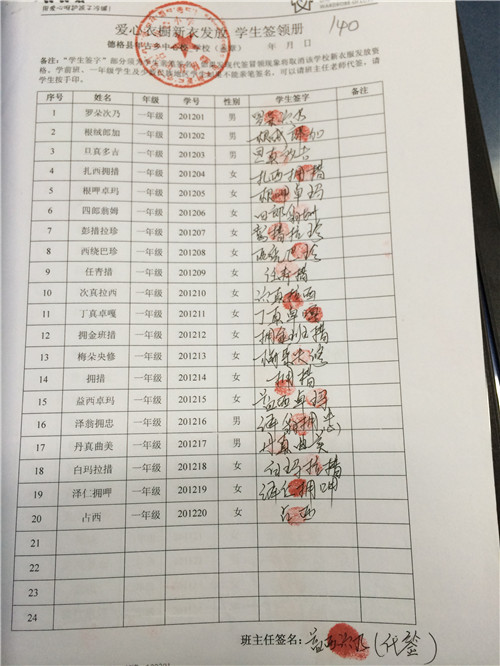 爱心衣橱新衣发放 学生签领册
140
年 月 日
序号 姓名 年级 学号 性别 学生签字 备注
1 罗朵次乃 一年级 201201 男 罗朵次乃
2 根绒郎加 一年级 201202 男 根绒郎加
3 旦真多吉 一年级 201203 男 旦真多吉
4 扎西拥措 一年级 201204 女 扎西拥措
5 根呷卓玛 一年级 201205 女 根呷卓玛
6 四郎翁姆 一年级 201206 女 四郎翁姆
7 彭措拉珍 一年级 201207 女 彭措拉珍
8 西绕巴珍 一年级 201208 女 西绕巴珍
9 任青措 一年级 201209 女 任青措
10 次真拉西 一年级 201210 女 次真拉西
11 丁真卓嘎 一年级 201211 女 丁真卓嘎
12 拥金班措 一年级 201212 女 拥金班措
13 梅朵央修 一年级 201213 女
14 拥措 一年级 201214 女 拥措
15 益西卓玛 一年级 201215 女 益西卓玛
16 泽翁拥忠 一年级 201216 男 泽翁拥忠
17 丹真曲美 一年级 201217 男 丹真曲美
18 白玛拉措 一年级 201218 女 白玛拉措
19 泽仁拥呷 一年级 201219 女 泽仁拥呷
20 占西 一年级 201220 女 占西
21
22
23
24
班主任签名：益西 (代签)